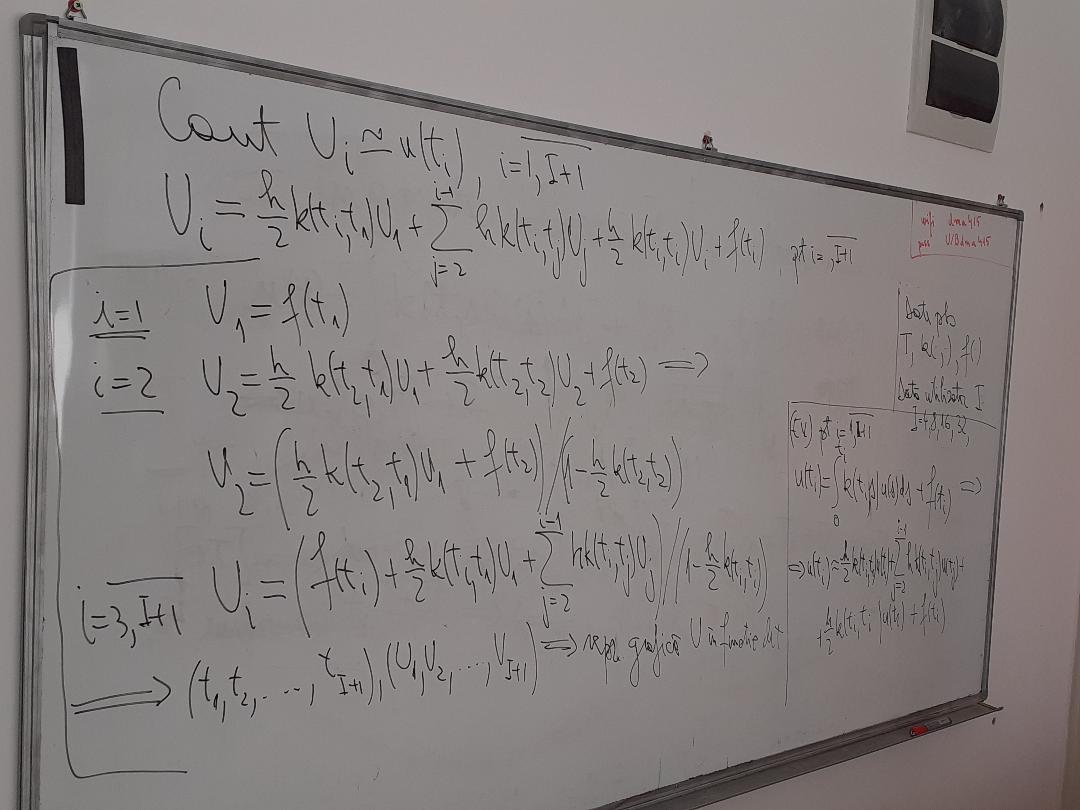 Caut U_i ≃ u(t_i), i = \overline{1, I+1}
U_i = \frac{h}{2} k(t_i, t_1) U_1 + \sum_{j=2}^{i-1} h k(t_i, t_j) U_j + \frac{h}{2} k(t_i, t_i) U_i + f(t_i), pt i = \overline{, I+1}
i=1 U_1 = f(t_1)
i=2 U_2 = \frac{h}{2} k(t_2, t_1) U_1 + \frac{h}{2} k(t_2, t_2) U_2 + f(t_2) ⟹
U_2 = (\frac{h}{2} k(t_2, t_1) U_1 + f(t_2)) / (1 - \frac{h}{2} k(t_2, t_2))
i = \overline{3, I+1} U_i = (f(t_i) + \frac{h}{2} k(t_i, t_1) U_1 + \sum_{j=2}^{i-1} h k(t_i, t_j) U_j) / (1 - \frac{h}{2} k(t_i, t_i))
⟹ (t_1, t_2, ...., t_{I+1}), (U_1, U_2, ...., U_{I+1}) ⟹ repr grafică U în funcție de t
wifi dma415
pass UBdma415
Date pb
T, k(·,·), f(·)
Date utilizator I
I=4,8,16,32,
(EV) pt i = \overline{1, I+1}
u(t_i) = \int_0^{t_i} k(t_i, s) u(s) ds + f(t_i) ⟹
⟹ u(t_i) ≈ \frac{h}{2} k(t_i, t_1) u(t_1) + \sum_{j=2}^{i-1} h k(t_i, t_j) u(t_j) +
+ \frac{h}{2} k(t_i, t_i) u(t_i) + f(t_i)